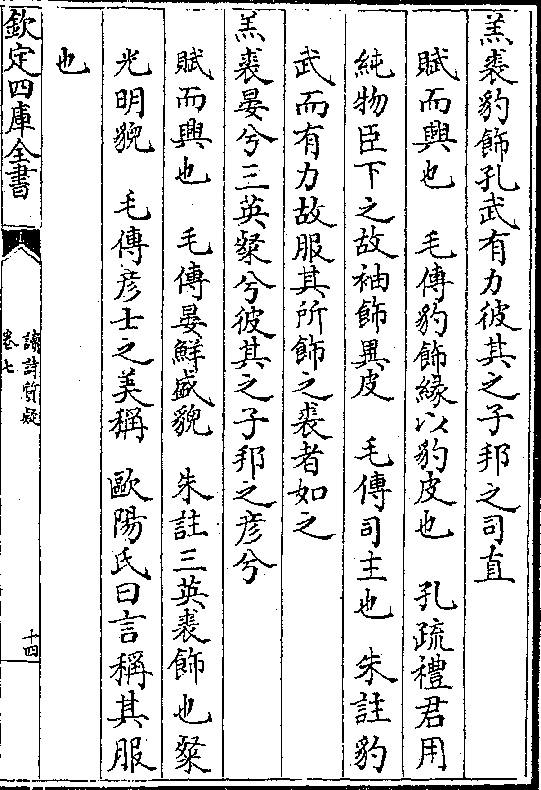 羔裘豹飾孔武有力彼其之子邦之司直
賦而興也　毛傳豹飾緣以豹皮也　孔疏禮君用
純物臣下之故袖飾異皮　毛傳司主也　朱註豹
武而有力故服其所飾之裘者如之
羔裘晏兮三英粲兮彼其之子邦之彥兮
賦而興也　毛傳晏鮮盛貌　朱註三英裘飾也粲
光明貌　毛傳彥士之美稱　歐陽氏曰言稱其服
也
欽定四庫全書
讀詩質疑
卷七
十四